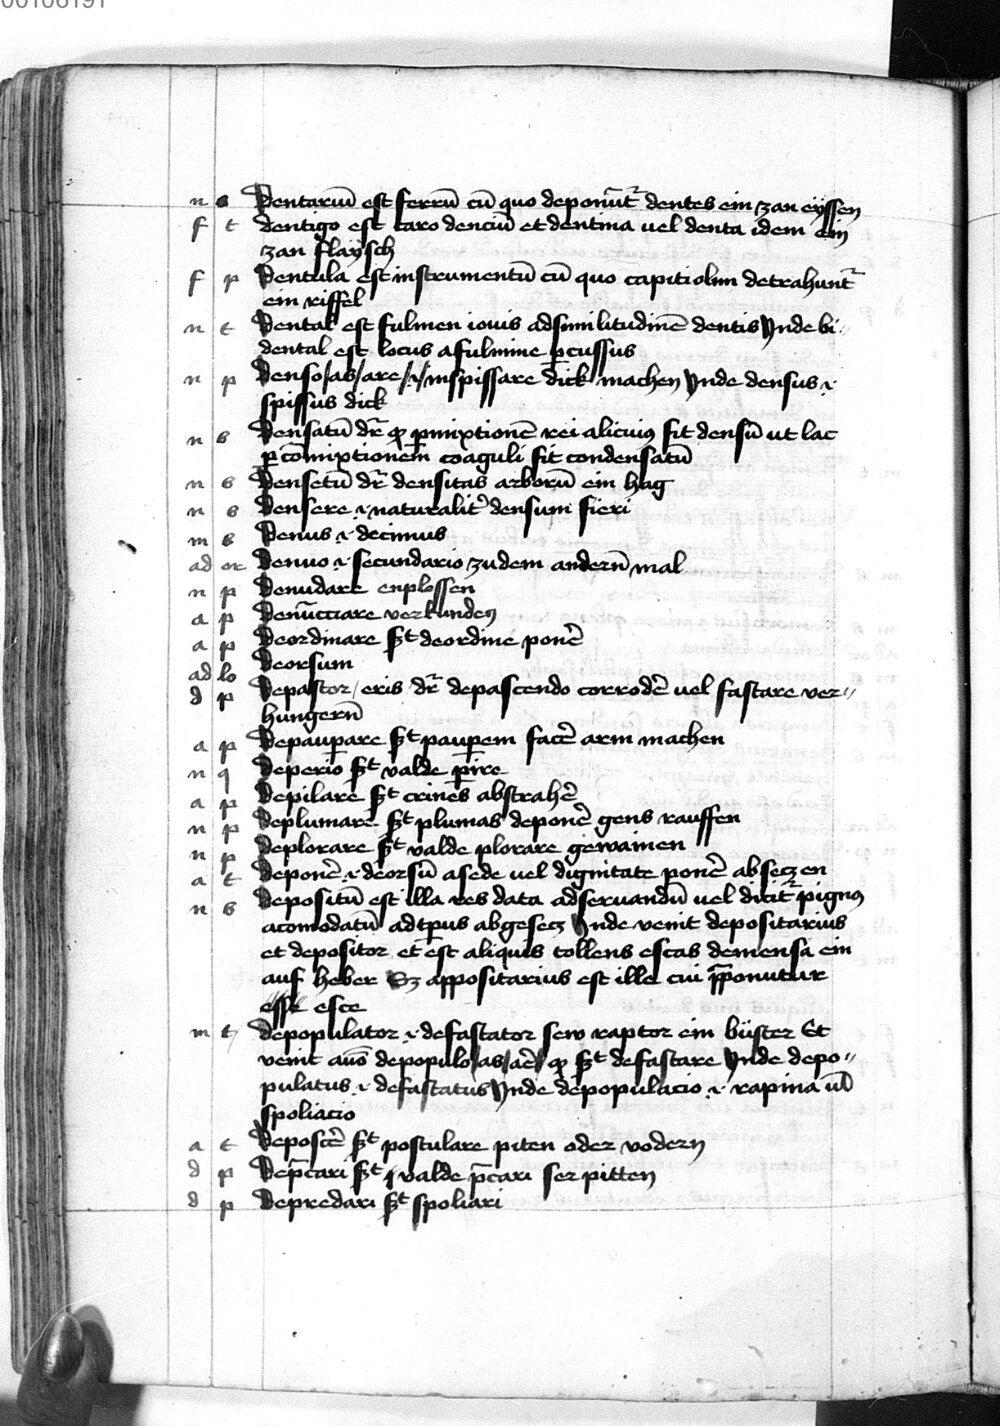 00106191
n s Dentariū est ferrū cū quo deponūt᷑ dentes ein zan eyssen
f t dentigo est caro denciū et dentina uel denta idem ein
zan flaysch
f p Dentula est instrumentū cū quo capitiolim detrahunt᷑
ein riffel
n t Dental est fulmen iouis ad similitudinē dentis Vnde bi-
dental est locus a fulmine ꝑcussus
n p Denso/as/are/.i./inspissare dick machen Vnde densus .i.
spissus dick
n s Densatū dr̄ qͦ ꝑmixtionē rei alicuiꝰ fit densū ut lac
ꝑ cōmixtionem coaguli fit condensatū
n s Densetū dr̄ densitas arborū ein hag
n s Densere .i. naturalit᷑ densum fieri
m s Denus .i. decimus
ad or Denuo .i. secundario zu dem andern̄ mal
n p Denudare enplossen
a p Denūcciare verkunden
a p Deordinare sͭ de ordine ponē
ad lo Deorsum
d p Depastor/eris dr̄ depascendo corrodē uel fastare ver-
hungern̄
a p Depauꝑare sͭ pauꝑem facē arm machen
n q Deperio sͭ valde ꝑire
a p Depilare sͭ crines abstrahē
n p Deplumare sͭ plumas deponē gens rauffen
n p Deplorare sͭ valde plorare gewainen
a t Deponē .i. deorsū a sede uel dignitate ponē abseczen
n s Depositū est illa res data ad seruandū uel dicit᷑ pignꝰ
acomodatū ad tp̄us abgesecz Vnde venit depositarius
et depositor et est aliquis tollens escas de mensa ein
auf heber Sz appositarius est ille cui ꝓponutur
esce
m t Depopulator .i. defastator sew raptor ein wüster Et
venit auō depopulo/as/aē/ qͦ sͭ defastare Vnde depo-
pulatus .i. defastatus Vnde depopulacio .i. rapina ul̄
spoliacio
a t Deposcē sͭ postulare piten oder vodern
d p Dep̄cari sͭ valde p̄cari ser pitten
d p Depredari sͭ spoliari